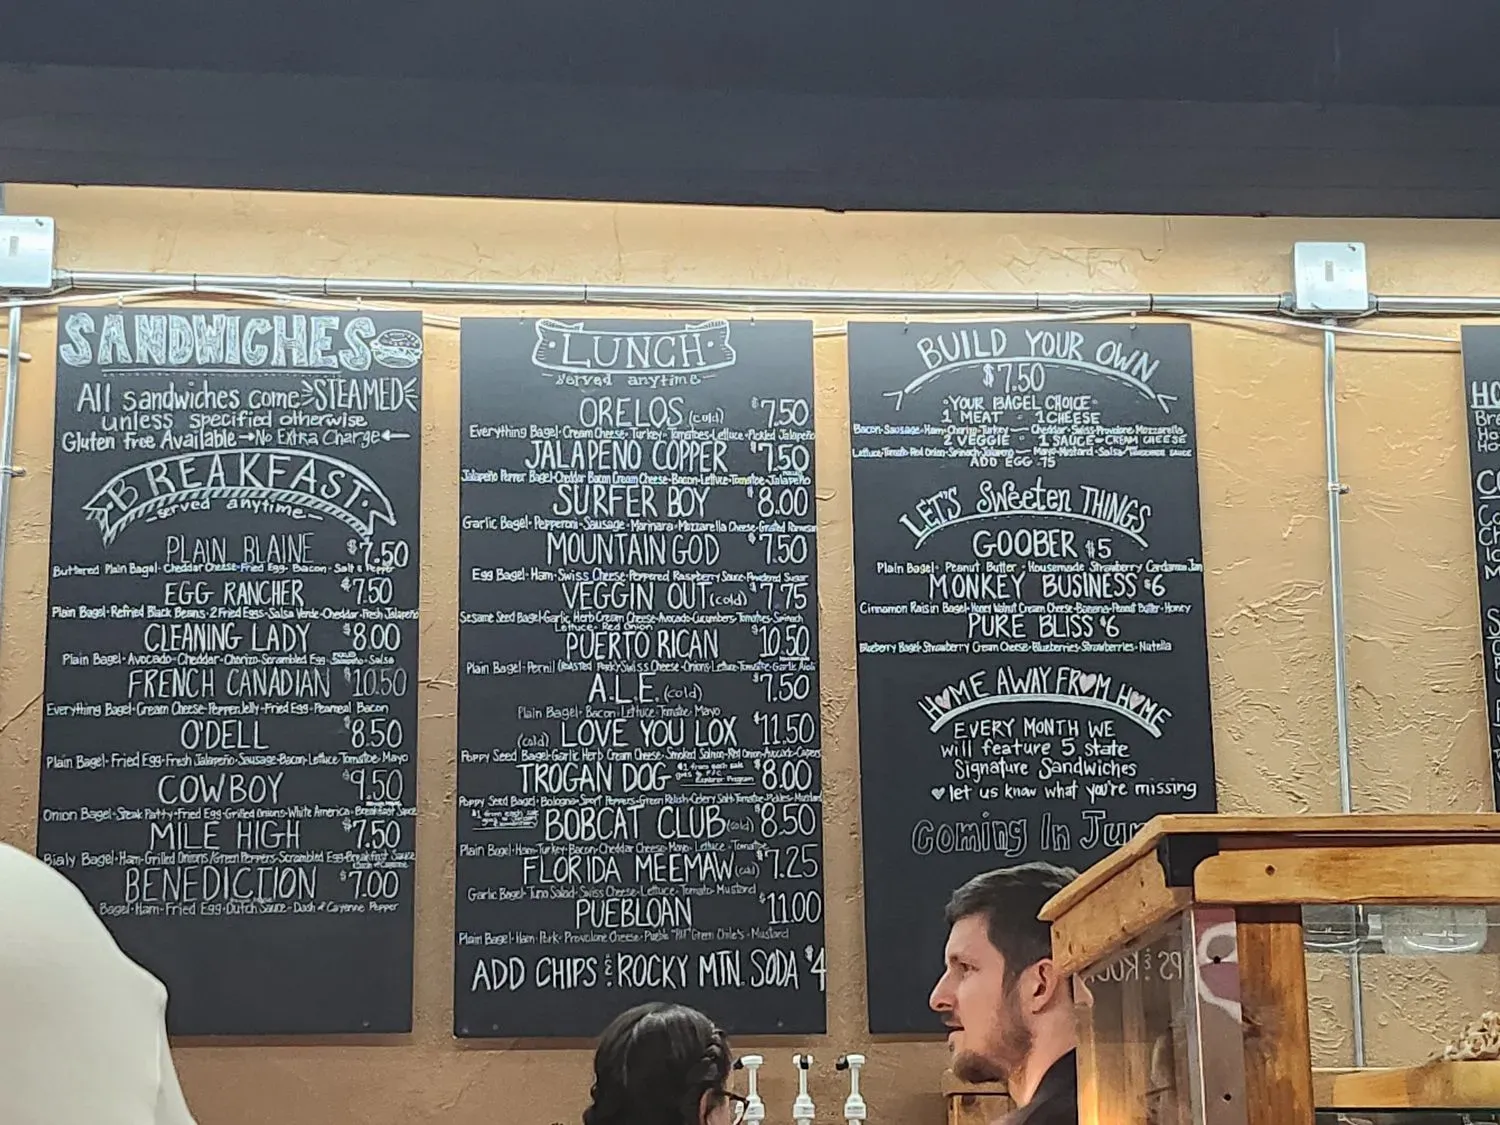 SANDWICHES
All sandwiches come STEAMED
unless specified otherwise
Gluten Free Available → No Extra Charge ←
BREAKFAST
served anytime
PLAIN BLAINE $7.50
Buttered Plain Bagel · Cheddar Cheese · Fried Egg · Bacon · Salt & Pepper
EGG RANCHER $7.50
Plain Bagel · Refried Black Beans · 2 Fried Eggs · Salsa Verde · Cheddar · Fresh Jalapeño
CLEANING LADY $8.00
Plain Bagel · Avocado · Cheddar · Chorizo · Scrambled Egg · Jalapeño · Salsa
FRENCH CANADIAN $10.50
Everything Bagel · Cream Cheese · Pepper Jelly · Fried Egg · Peameal Bacon
O'DELL $8.50
Plain Bagel · Fried Egg · Fresh Jalapeño · Sausage · Bacon · Lettuce · Tomatoe · Mayo
COWBOY $9.50
Onion Bagel · Steak Patty · Fried Egg · Grilled Onions · White America · Breakfast Sauce
MILE HIGH $7.50
Bialy Bagel · Ham · Grilled Onions/Green Peppers · Scrambled Egg · Breakfast Sauce
BENEDICTION $7.00
Bagel · Ham · Fried Egg · Dutch Sauce · Dash of Cayenne Pepper
LUNCH
served anytime
ORELOS (cold) $7.50
Everything Bagel · Cream Cheese · Turkey · Tomatoes · Lettuce · Pickled Jalapeño
JALAPENO COPPER $7.50
Jalapeño Pepper Bagel · Cheddar Bacon Cream Cheese · Bacon · Lettuce · Tomatoe · Jalapeño
SURFER BOY $8.00
Garlic Bagel · Pepperoni · Sausage · Marinara · Mozzarella Cheese · Grated Parmesan
MOUNTAIN GOD $7.50
Egg Bagel · Ham · Swiss Cheese · Peppered Raspberry Sauce · Powdered Sugar
VEGGIN OUT (cold) $7.75
Sesame Seed Bagel · Garlic Herb Cream Cheese · Avocado · Cucumbers · Tomatoes · Spinach
Lettuce · Red Onion
PUERTO RICAN $10.50
Plain Bagel · Pernil (Roasted Pork) · Swiss Cheese · Onions · Lettuce · Tomatoe · Garlic Aioli
A.L.E. (cold) $7.50
Plain Bagel · Bacon · Lettuce · Tomatoe · Mayo
(cold) LOVE YOU LOX $11.50
Poppy Seed Bagel · Garlic Herb Cream Cheese · Smoked Salmon · Red Onion · Avocado · Capers
TROGAN DOG $1 from each sale $8.00
Explorer Program
Poppy Seed Bagel · Bologna · Sport Peppers · Green Relish · Celery Salt · Tomatoe · Pickles · Mustard
$1 from each sale BOBCAT CLUB (cold) $8.50
Plain Bagel · Ham · Turkey · Bacon · Cheddar Cheese · Mayo · Lettuce · Tomatoe
FLORIDA MEEMAW (cold) $7.25
Garlic Bagel · Tuna Salad · Swiss Cheese · Lettuce · Tomato · Mustard
PUEBLOAN $11.00
Plain Bagel · Ham · Pork · Provolone Cheese · Pueblo Green Chile's · Mustard
ADD CHIPS & ROCKY MTN. SODA $4
BUILD YOUR OWN
$7.50
·YOUR BAGEL CHOICE·
1 MEAT — 1 CHEESE
Bacon · Sausage · Ham · Chorizo · Turkey — Cheddar · Swiss · Provolone · Mozzarella
2 VEGGIE · 1 SAUCE · CREAM CHEESE
Lettuce · Tomato · Red Onion · Spinach · Jalapeno — Mayo · Mustard · Salsa
ADD EGG .75
LET'S Sweeten THINGS
GOOBER $5
Plain Bagel · Peanut Butter · Housemade Strawberry Cardamom Jam
MONKEY BUSINESS $6
Cinnamon Raisin Bagel · Honey Walnut Cream Cheese · Banana · Peanut Butter · Honey
PURE BLISS $6
Blueberry Bagel · Strawberry Cream Cheese · Blueberries · Strawberries · Nutella
HOME AWAY FROM HOME
EVERY MONTH WE
will feature 5 state
Signature Sandwiches
♥ let us know what you're missing
Coming In Ju